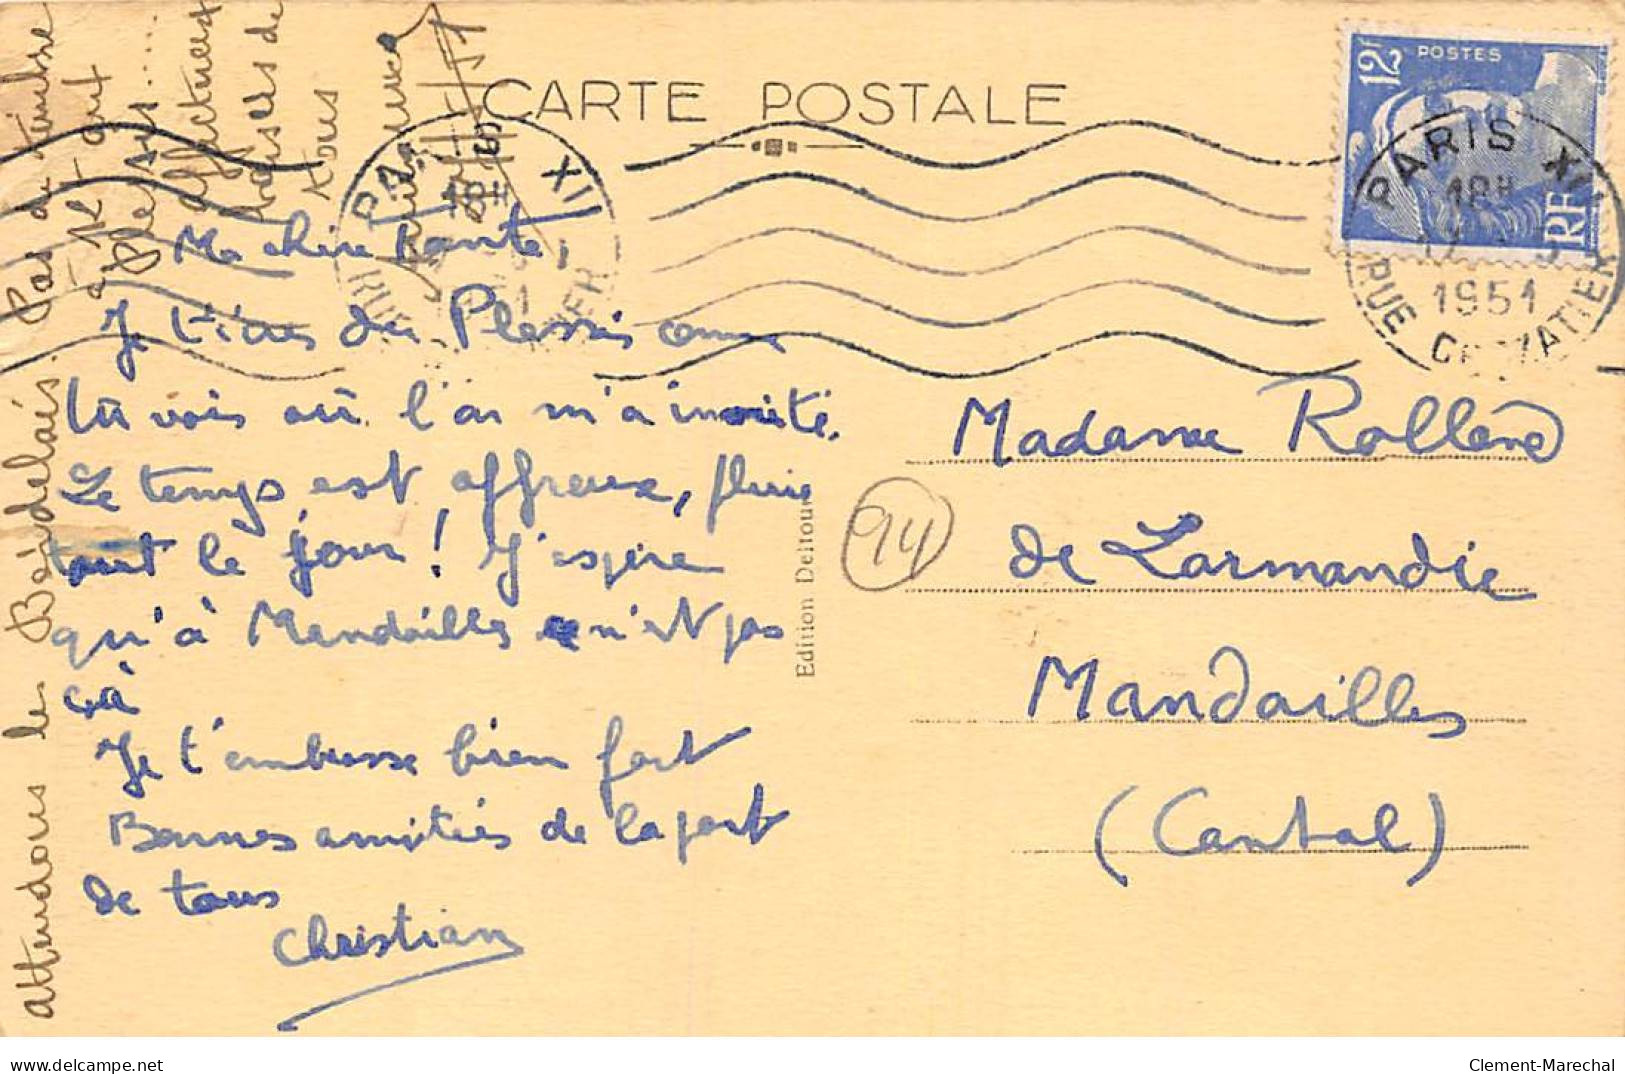 CARTE POSTALE
12F
POSTES
RF
PARIS XII
18H
1951
RUE
PARIS XII
18H
RUE
Ma chère tante,
Je t'écris du Plessis comme
tu vois où l'on m'a invité.
Le temps est affreux, pluie
tout le jour ! J'espère
qu'à Mandailles n'est pas
çà
Je t'embrasse bien fort
Bonnes amitiés de la part
de tous
Christian
attendons les Bordelais. Pas de timbre
affectueux
baisers de
tous
51
Edition Deltour
94
Madame Rollène
de Larmandie
Mandailles
(Cantal)
delcampe.net
Clement-Marechal